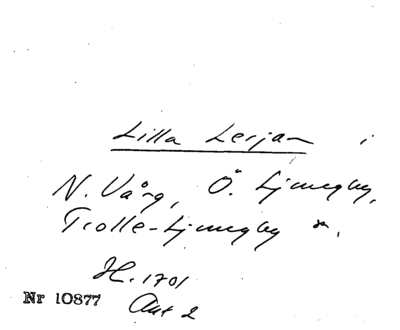 Lilla Lerjan i
N. Vång, Ö. Ljungby,
Trolle-Ljungby
H. 1701
Nr 10877 Ant 2